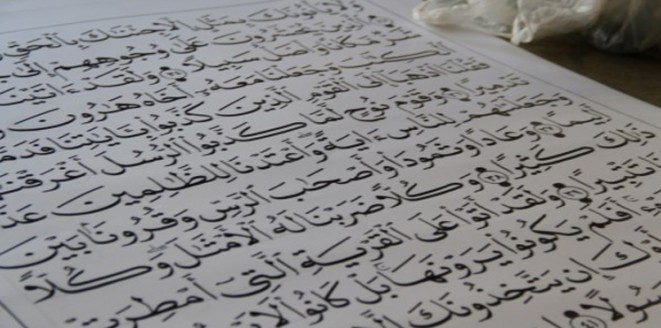 وَلَا يَأْتُونَكَ بِمَثَلٍ إِلَّا جِئْنَٰكَ بِٱلْحَقِّ
ٱلَّذِينَ يُحْشَرُونَ عَلَىٰ وُجُوهِهِمْ إِلَىٰ
مَّكَانًا وَأَضَلُّ سَبِيلًا وَلَقَدْ ءَاتَيْنَا
ٱلْكِتَٰبَ وَجَعَلْنَا مَعَهُۥٓ أَخَاهُ هَٰرُونَ
فَقُلْنَا ٱذْهَبَآ إِلَى ٱلْقَوْمِ ٱلَّذِينَ كَذَّبُوا۟ بِـَٔايَٰتِنَا
تَدْمِيرًا وَقَوْمَ نُوحٍ لَّمَّا كَذَّبُوا۟ ٱلرُّسُلَ
وَجَعَلْنَٰهُمْ لِلنَّاسِ ءَايَةً وَأَعْتَدْنَا لِلظَّٰلِمِينَ
أَلِيمًا وَعَادًا وَثَمُودَا۟ وَأَصْحَٰبَ ٱلرَّسِّ وَقُرُونًۢا بَيْنَ
ذَٰلِكَ كَثِيرًا وَكُلًّا ضَرَبْنَا لَهُ ٱلْأَمْثَٰلَ وَكُلًّا
تَتْبِيرًا وَلَقَدْ أَتَوْا۟ عَلَى ٱلْقَرْيَةِ ٱلَّتِىٓ أُمْطِرَتْ
أَفَلَمْ يَكُونُوا۟ يَرَوْنَهَا بَلْ كَانُوا۟ لَا
إِن يَتَّخِذُونَكَ إِلَّا